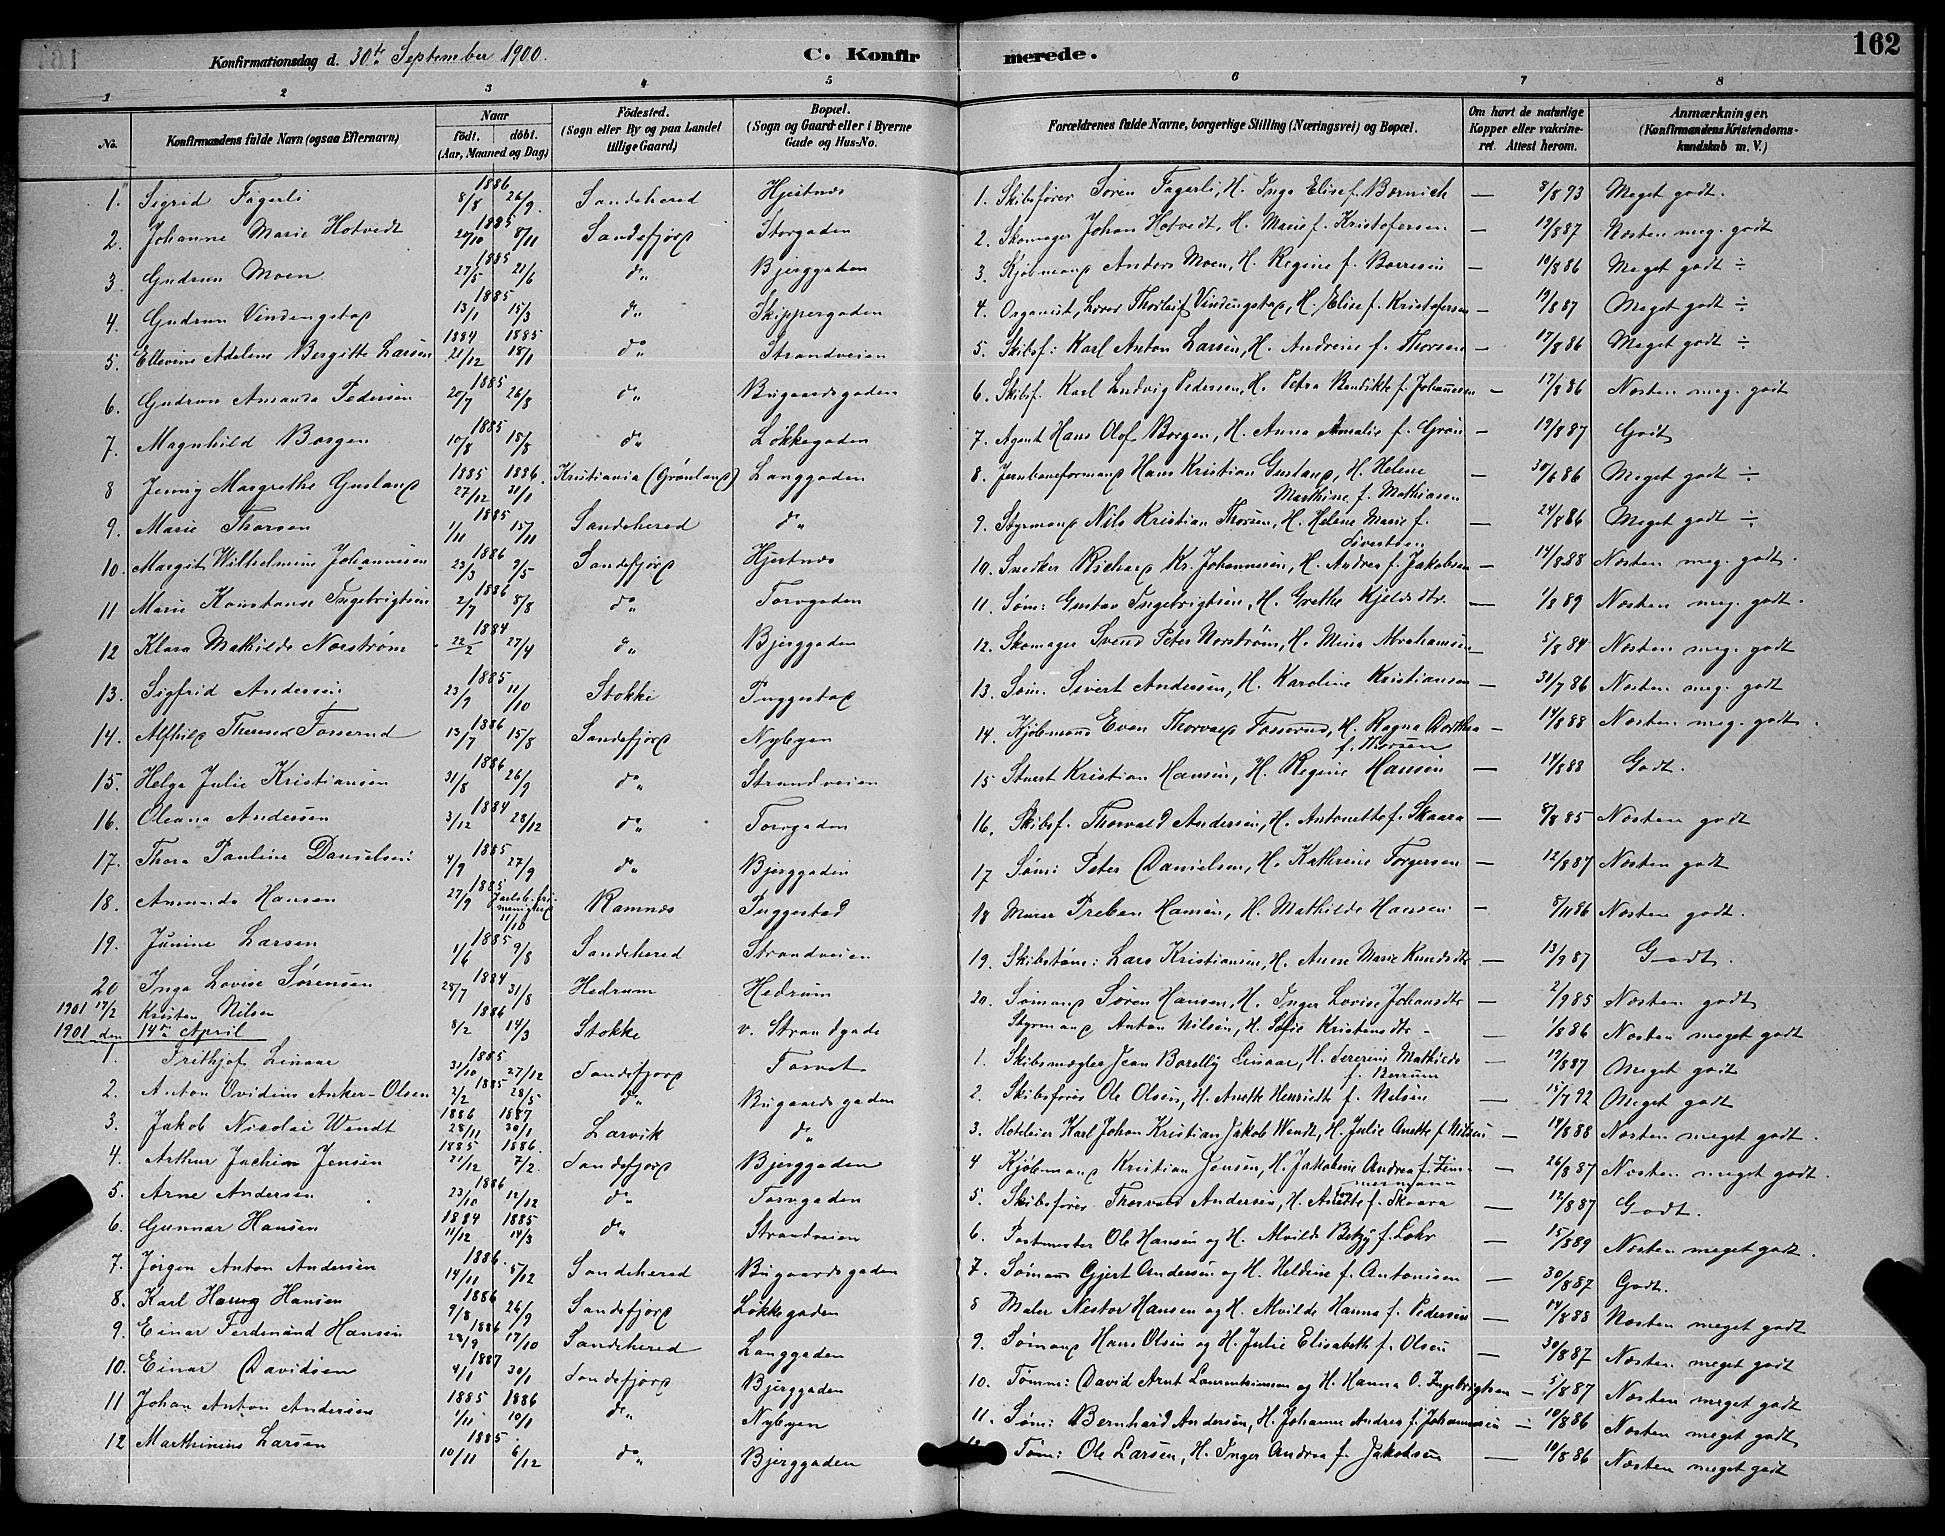 162
Konfirmationsdag d. 30te September 1900. C. Konfirmerede.
1 2 3 4 5 6 7 8
No. Konfirmandens fulde Navn (ogsaa Efternavn) Naar født. døbt. (Aar, Maaned og Dag) Fødested. (Sogn eller By og paa Landet tillige Gaard) Bopæl. (Sogn og Gaard eller i Byerne Gade og Hus-No. Forældrenes fulde Navne, borgerlige Stilling (Næringsvei) og Bopæl. Om havt de naturlige Kopper eller vakcineret. Attest herom. Anmærkninger (Konfirmandens Kristendomskundskab m. V.)
1. Sigrid Fagerli 1886 8/8 26/9 Sandeherred Hjertnæs 1. Skibsfører Søren Fagerli, H. Inga Elise f. Bernich — 8/8 93 Meget godt.
2. Johanne Marie Hotvedt 1885 20/10 8/11 Sandefjord Storgaden 2. Skomager Johan Hotvedt, H. Marie f. Kristofersen — 19/8 87 Næsten meg. godt
3. Gudrun Moen 1885 27/5 21/6 do. Bjerggaden 3. Kjøbmand Anders Moen, H. Regine f. Borresen — 10/8 86 Meget godt ÷
4. Gudrun Vindengstad 1885 13/1 15/3 do. Skippergaden 4. Organist, Lærer Thorleif Vindengstad, H. Elise f. Kristofersen — 19/8 87 Meget godt ÷
5. Ellevine Adelene Bergitte Larsen 1884 21/12 1885 18/1 do. Strandveien 5. Skibsf: Karl Anton Larsen, H. Andreine f. Thorsen — 17/8 86 Meget godt ÷
6. Gudrun Amanda Pedersen 1885 20/7 26/8 do. Bugaardsgaden 6. Skibsf. Karl Ludvig Pedersen, H. Petra Bendikte f. Johannesen — 17/8 86 Næsten meg. godt
7. Magnhild Borgen 1885 10/8 15/8 do. Løkkegaden 7. Agent Hans Olof Borgen, H. Anna Amalie f. Grøn — 19/8 87 Godt
8 Jenny Margrethe Gusland 1885 27/12 1886 31/1 Kristiania (Grønland) Langgaden 8. Jernbaneformand Hans Kristian Gusland, H. Helene Marthine f. Mathiasen — 30/6 86 Meget godt ÷
9. Marie Thorsen 1885 1/11 15/11 Sandeherred do. 9. Styrmand Nils Kristian Thorsen, H. Helene Marie f. Sivertsen — 24/8 86 Meget godt ÷
10. Margit Wilhelmine Johannesen 1886 23/3 9/5 Sandefjord Hjertnæs 10. Snedker Richard Kr. Johannesen, H. Andrea f. Jakobsen — 14/8 88 Næsten meg. godt.
11 Marie Konstanse Ingebrigtsen 1886 2/7 8/8 do. Torvgaden 11. Søm: Gustav Ingebrigtsen, H. Grethe Kjeldsdtr. — 1/8 89 Næsten meg. godt.
12 Klara Mathilde Norstrøm 1884 22/2 27/4 do. Bjerggaden 12. Skomager Svend Peter Norstrøm, H. Mina Abrahamsen — 5/8 84 Næsten meg. godt
13. Sigfrid Andersen 1885 23/9 11/10 Stokke Puggestad 13. Søm. Sivert Andersen, H. Karoline Kristiansen — 30/7 86 Næsten meg. godt
14. Alfhild Fosserud 1886 13/7 15/8 Sandefjord Nybyen 14. Kjøbmand Even Thorvald Fosserud, H. Ragna Dorthea f. Thorsen — 14/8 88 Næsten meg. godt.
15. Helga Julie Kristiansen 1886 31/8 26/9 do. Strandveien 15 Stuert Kristian Hansen, H. Regine Hansen — 14/8 88 Godt.
16. Oleana Andersen 1884 3/12 28/12 do. Torvgaden 16. Skibsf. Thorvald Andersen, H. Antonette f. Skaara — 8/8 85 Næsten godt
17. Thora Pauline Danielsen 1885 4/9 27/9 do. Bjerggaden 17 Søm: Peter Danielsen, H. Kathrine Torgersen — 12/8 87 Næsten godt
18. Amanda Hansen 1885 27/9 11/10 Ramnes Puggestad 18 Murer Preben Hansen, H. Mathilde Hansen — 8/11 86 Næsten godt.
19. Janine Larsen 1885 1/6 9/8 Sandeherred Strandveien 19. Skibstøm: Lars Kristiansen, H. Anne Marie Knudsdtr — 13/9 87 Godt.
20 Inga Lovise Sørensen 1884 28/7 31/8 Hedrum Hedrum 20. Sømand Søren Hansen, H. Inger Lovise Johansdtr — 2/9 85 Næsten godt
1901 17/2 Kristen Nilsen 1886 8/2 14/3 Stokke v. Strandgade Styrmand Anton Nilsen, H. Sofie Kristensdtr — 1/8 86 Næsten meget godt
1901 den 14de April
1. Frithjof Linaae 1885 31/10 27/12 Sandefjord Torvet 1. Skibsmægler Jean Borelly Linaae, H. Severine Mathilde f. Berrum — 19/8 87 Meget godt
2. Anton Ovidius Anker-Olsen 1885 2/2 28/5 do. Bugaardsgaden 2. Skibsfører Ole Olsen, H. Anette Henriette f. Nilsen — 15/7 92 Meget godt
3. Jakob Nicolai Wendt 1886 28/11 1887 30/1 Larvik do. 3. Hoteleier Karl Johan Kristian Jakob Wendt, H. Julie Anette f. Nilsen — 14/8 88 Næsten meget godt.
4. Arthur Jachim Jensen 1885 21/12 1886 7/2 Sandefjord Bjerggaden 4 Kjøbmand Kristian Jensen, H. Jakobine Andrea f. Zimmermann — 26/8 87 Næsten meget godt.
5. Arne Andersen 1886 23/10 12/12 do. Torvgaden 5. Skibsfører Thorvald Andersen, H. Anette f. Skaara — 12/8 87 Godt.
6. Gunnar Hansen 1884 11/12 1885 14/3 do. Strandveien 6. Postmester Ole Hansen og H. Alvilde Betzy f. Lohr — 15/8 89 Næsten meget godt.
7. Jørgen Anton Andersen 1886 14/11 5/12 Sandeherred Bugaardsgaden 7. Sømand Gjert Andersen og H. Heldine f. Antonisen — 30/8 87 Godt.
8. Karl Harry Hansen 1886 9/8 26/9 Sandefjord Løkkegaden 8 Maler Nestor Hansen og H. Alvilde Hanna f. Pedersen — 14/8 88 Næsten meget godt
9. Einar Ferdinand Hansen 1886 28/9 17/10 Sandeherred Langgaden 9. Sømand Hans Olsen og H. Julie Elisabeth f. Olsen — 30/8 87 Næsten meget godt
10. Einar Davidsen 1887 4/1 30/1 Sandefjord Bjerggaden 10. Tømm: David Arnt Laurentiussen og H. Hanna O. Ingebrigtsen — 5/8 87 Næsten meget godt
11 Johan Anton Andersen 1885 1/11 1886 10/1 do. Nybyen 11. Søm: Bernhard Andersen, H. Johanne Andrea f. Johannesen — 10/8 86 Næsten meget godt
12 Marthinius Larsen 1885 10/11 6/12 do. Bjerggaden 12. Tøm: Ole Larsen, H. Inger Andrea f. Jakobsen — 10/8 86 Næsten meget godt